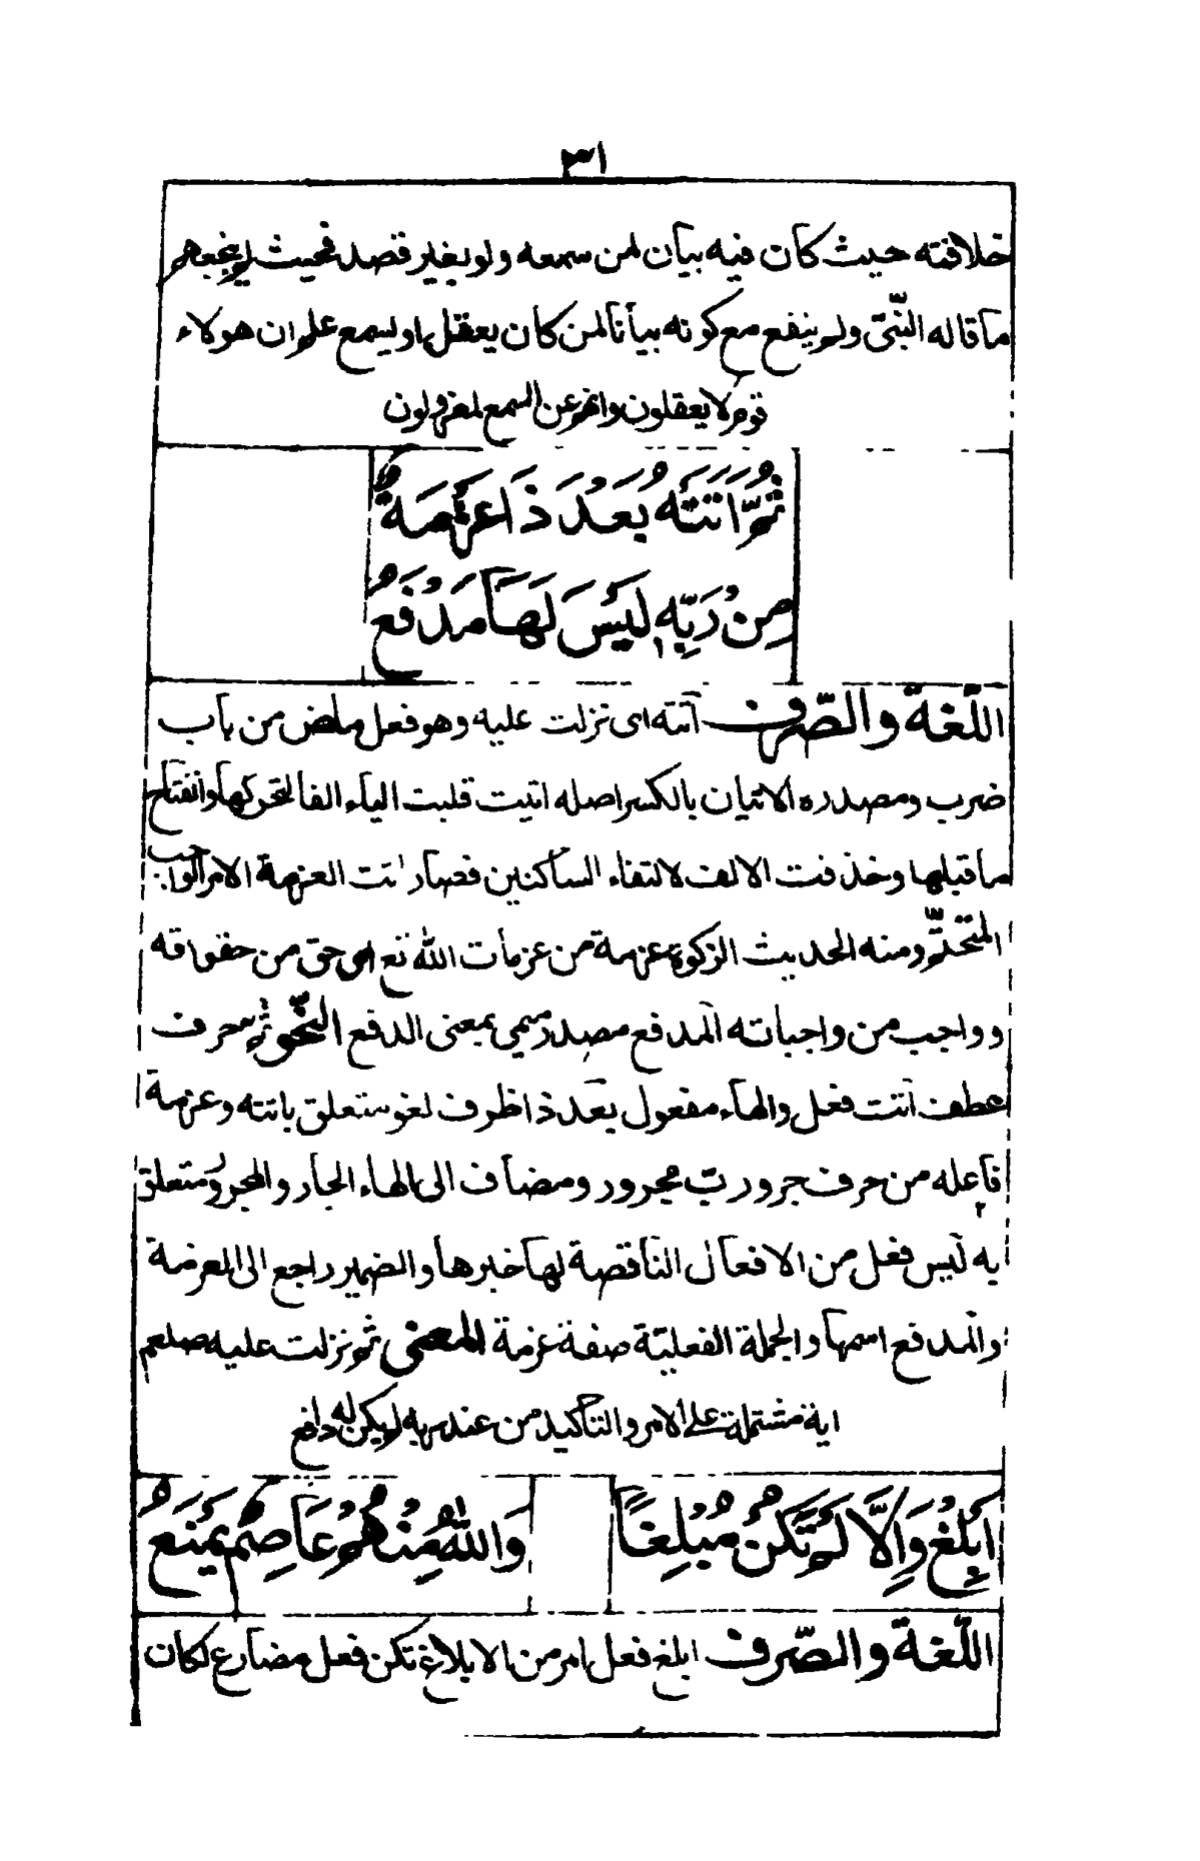 ٣١
خلافته حيث كان فيه بيان لمن سمعه ولو بغير قصد فحيث لم ينجعهم
ما قاله النبّي ولم ينفع مع كونه بيانا لمن كان يعقل او يسمع علم ان هولاء
قوم لا يعقلون وانهم عن السمع لمعزولون
ثُمَّ اَتَتْهُ بَعْدَ ذَا عَزْمَةٌ
مِنْ رَبِّهٖ لَيْسَ لَهَا مَدْفَعُ
اللّغة والصّرف اتته اى نزلت عليه وهو فعل ماض من باب
ضرب ومصدره الاتيان بالكسر اصله اتيت قلبت الياء الفا لتحركها وانفتاح
ما قبلها وخذفت الالف لالتقاء الساكنين فصار اتت العزمة الامر الواجب
المتحتّم ومنه الحديث الزكوة عزمة من عزمات الله تع اى حق من حقواقه
وواجب من واجباته المدفع مصدر ميمي بمعنى الدفع النّحو ثمّ حرف
عطف اتت فعل والهاء مفعول بعد ذا ظرف لغو متعلق باتته وعزمة
فاعله من حرف جر ورب مجرور ومضاف الى الهاء الجار والمجرور متعلق
به ليس فعل من الافعال الناقصة لها خبرها والضمير راجع الى العزمة
والمدفع اسمها والجملة الفعليّة صفة عزمة المعنى ثم نزلت عليه صلعم
اية مشتملة على الامر والتاكيد من عند ربه لم يكن له دافع
اَبْلِغْ وَاِلَّا لَمْ تَكُنْ مُبْلِغًا وَاللهُ مِنْهُمْ عَاصِمٌ يَمْنَعُ
اللّغة والصّرف ابلغ فعل امر من الابلاغ تكن فعل مضارع لكان